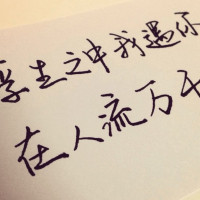 浮生之中我遇你
在人流万千